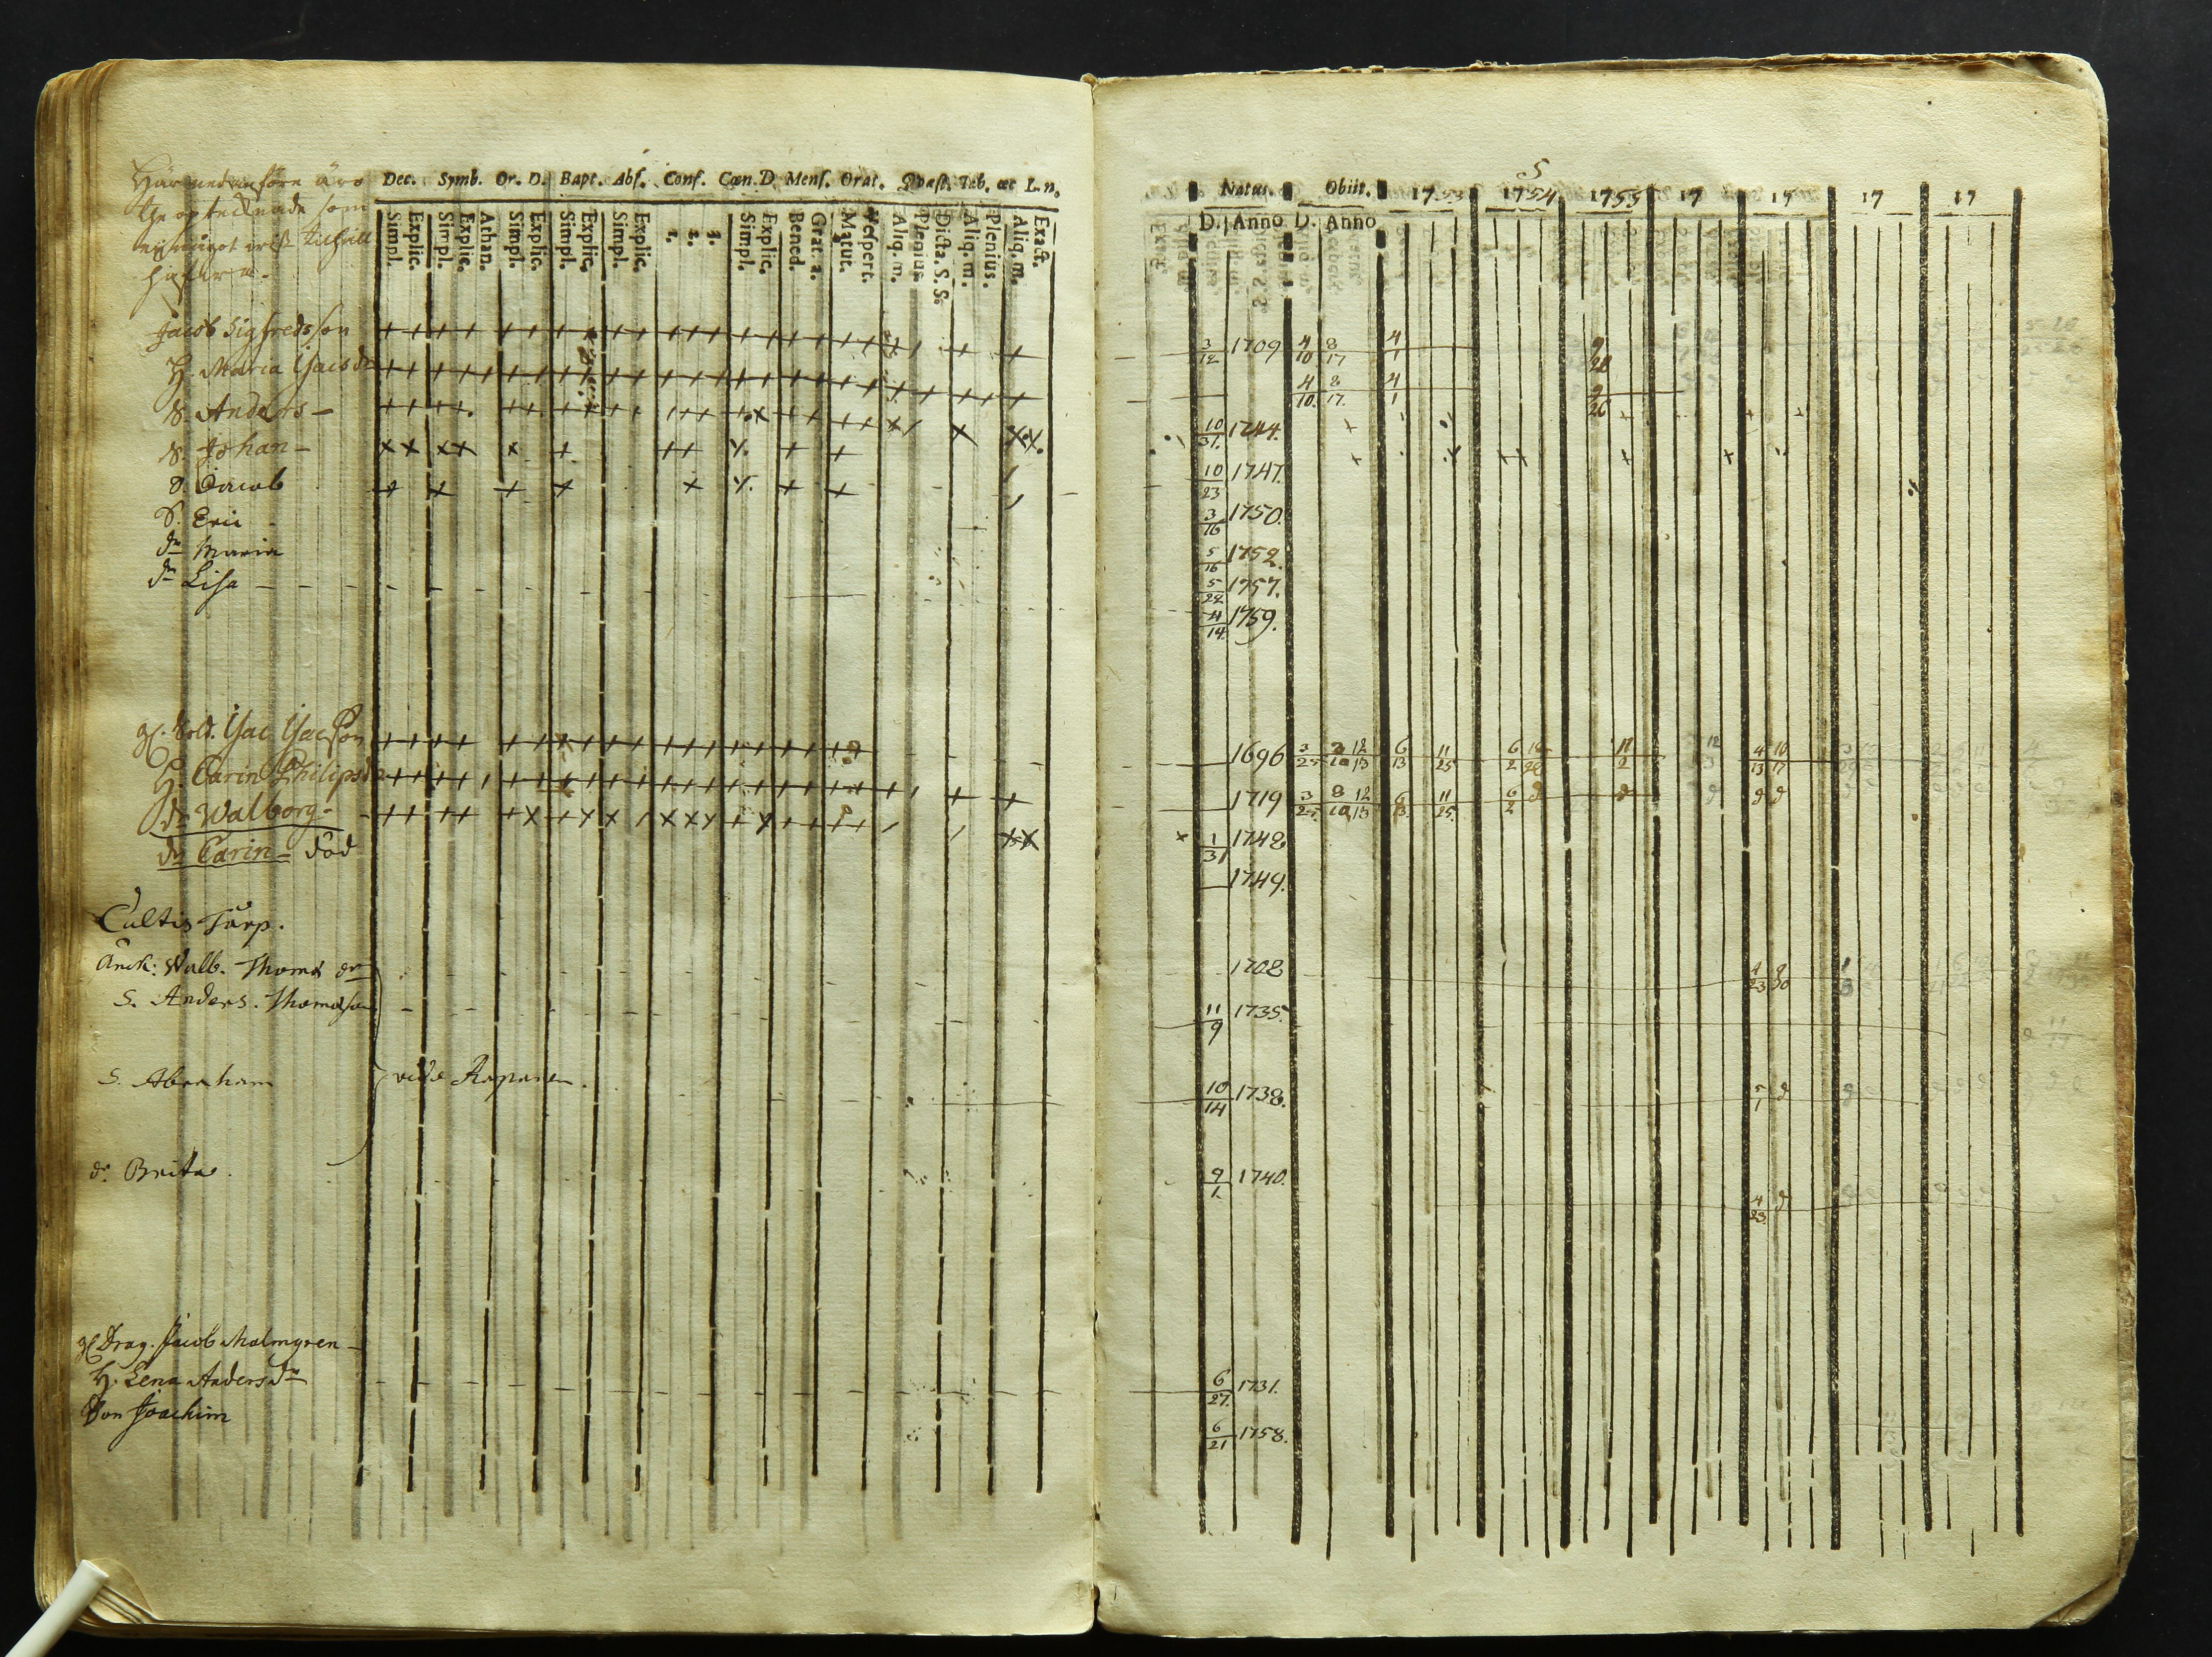 Här nedanföre äro
the optecknade som
hafva.
Dec. Symb. Or. D. Bapt. Abs. Conf. Cœn. D. Mens. Orat. Quæst. Tab. œc L. n.
Simpl. Explic. Simpl. Explic. Athan. Simpl. Explic. Simpl. Explic. Simpl. Explic. 1. 2. 3. Simpl. Explic. Bened. Grat. a. Matut. Vespert. Aliq. m. Plenius. Dicta. S. S. Aliq. m. Plenius. Aliq. m. Exact.
Jacob Sigfredsson
H. Maria Isacs dr
S. Anders
S. Johan
S. Jacob
S. Eric
dr Maria
dr Lisa
gl. Sold. Isac Isacsson
H. Carin Philipsdr
dr Walborg
dr Carin död
Cultis Tårp.
Änck: Walb. Thomæ dr
S. Anders. Thomasson
S. Abraham vide Raponen.
dr Brita.
gl Drag. Jacob Malmgren
H. Lena Anders dr
Son Joachim
5
Natus. Obiit. 1753 1754 1755 17 17 17 17
D. Anno D. Anno
3/12 1709 4/10 8/17 4/1
4/10. 8/17. 4/1 9/26
10/31. 1744.
10/23 1747.
3/16 1750.
5/16 1752.
5/22. 1757.
4/14. 1759.
1696 3/25 12/13 6/13 11/25 6/2 11/2 4/13 10/17
1719 3/25. 8/10 12/13 6/13. 11/25. 6/2 d d d d
1/31 1748
1749.
1708 4/23
11/9 1735.
10/14 1738. 5/1 d
9/1. 1740. 4/23. d
6/27. 1731.
6/21 1758.